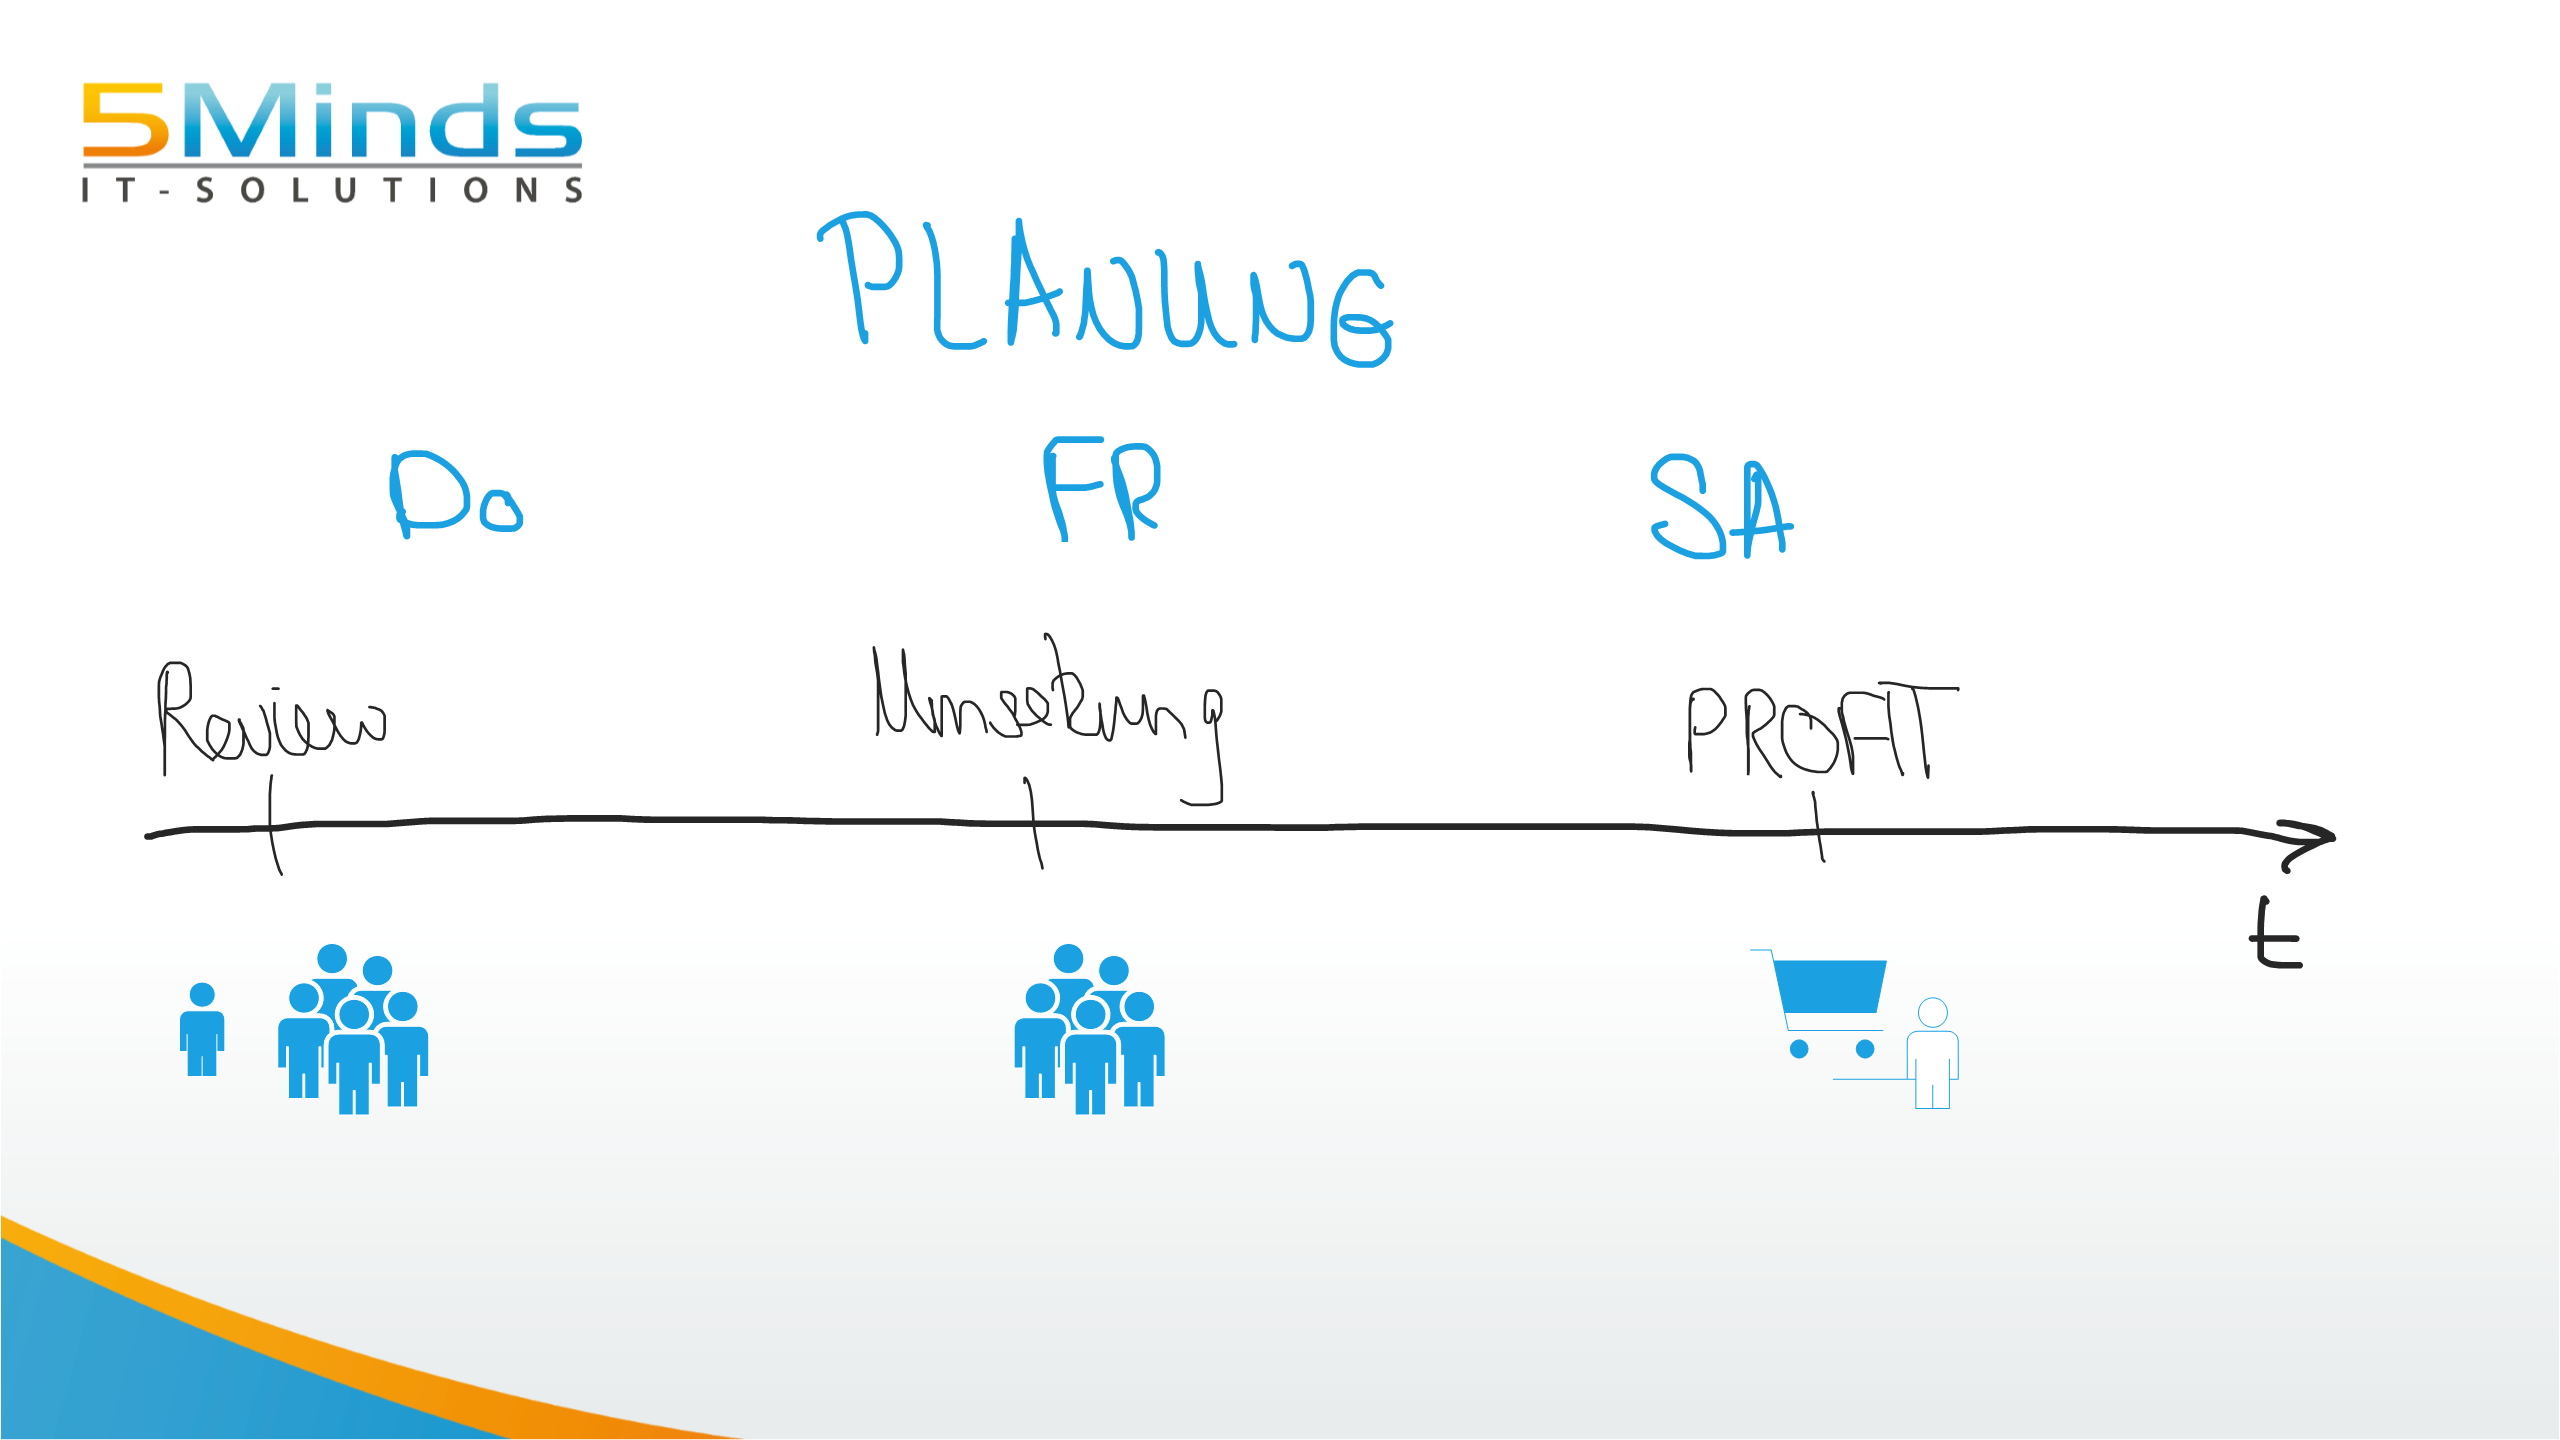 5Minds
IT-SOLUTIONS
PLANUNG
Do FR SA
Review Umsetzung PROFIT
t